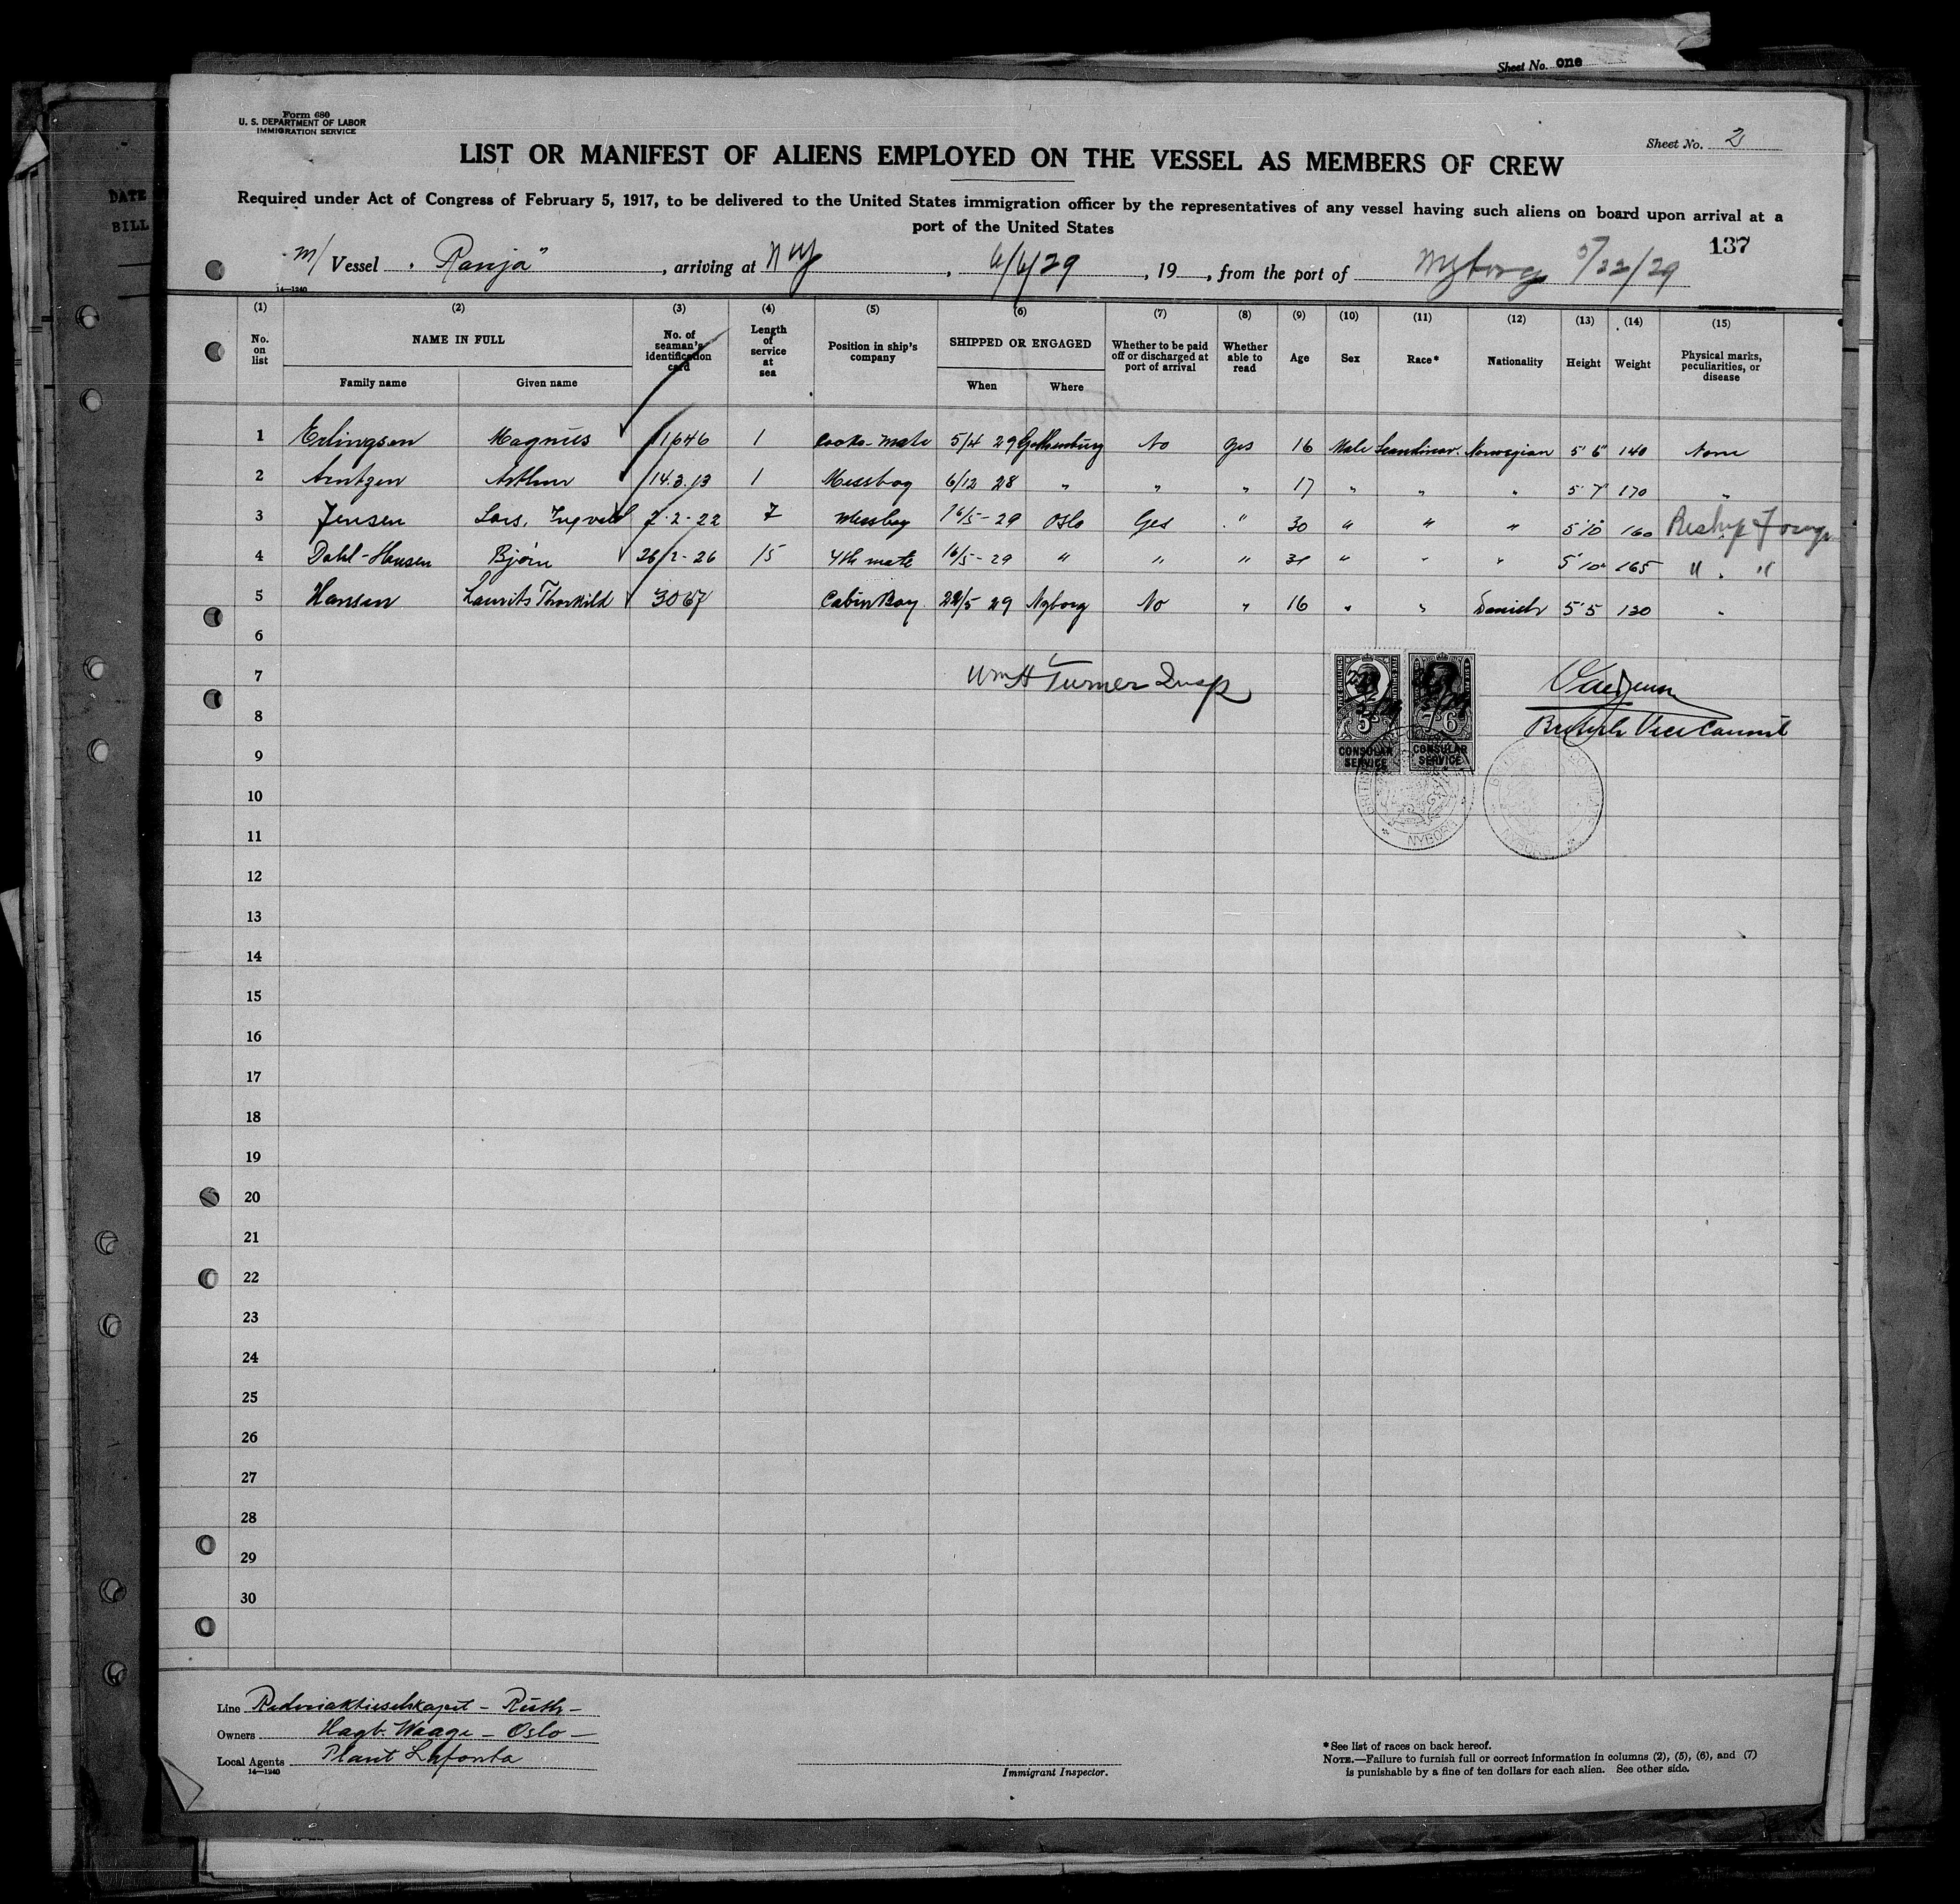 Sheet No. one
DATE
BILL
Form 680
U. S. DEPARTMENT OF LABOR
IMMIGRATION SERVICE
Sheet No. 2
LIST OR MANIFEST OF ALIENS EMPLOYED ON THE VESSEL AS MEMBERS OF CREW
Required under Act of Congress of February 5, 1917, to be delivered to the United States immigration officer by the representatives of any vessel having such aliens on board upon arrival at a
port of the United States
137
m/ Vessel "Ranja", arriving at N Y, 6/6/29, 19, from the port of Nyborg 5/22/29
14—1240
(1) (2) (3) (4) (5) (6) (7) (8) (9) (10) (11) (12) (13) (14) (15)
No. on list NAME IN FULL Family name Given name No. of seaman's identification card Length of service at sea Position in ship's company SHIPPED OR ENGAGED When Where Whether to be paid off or discharged at port of arrival Whether able to read Age Sex Race* Nationality Height Weight Physical marks, peculiarities, or disease
1 Erlingsen Magnus 11646 1 Cooks-mate 5/4 29 Gothenburg No Yes 16 Male Scandinav. Norwegian 5' 6" 140 None
2 Arntzen Arthur 14.3.13 1 Messboy 6/12 28 " " " 17 " " " 5' 7" 170 "
3 Jensen Lars, Ingvald 7-2-22 7 Messboy 16/5-29 Oslo Yes " 30 " " " 5'10" 160 Reship Foreign
4 Dahl-Hansen Bjørn 26/2-26 15 4th mate 16/5-29 " " " 31 " " " 5'10" 165 " "
5 Hansen Laurits Thorkild 3067 Cabin Boy 22/5 29 Nyborg No " 16 " " Danish 5'5 130 "
6
7
8
9
10
11
12
13
14
15
16
17
18
19
20
21
22
23
24
25
26
27
28
29
30
Wm H Turner Insp
FIVE SHILLINGS
5/-
7/6
CONSULAR SERVICE
CONSULAR SERVICE
British Vice Consul
NYBORG
Line Rederiaktieselskapet - Ruth -
Owners Hagb. Waage - Oslo -
Local Agents Plant Lafonta
14—1240
Immigrant Inspector.
*See list of races on back hereof.
NOTE.—Failure to furnish full or correct information in columns (2), (5), (6), and (7)
is punishable by a fine of ten dollars for each alien. See other side.